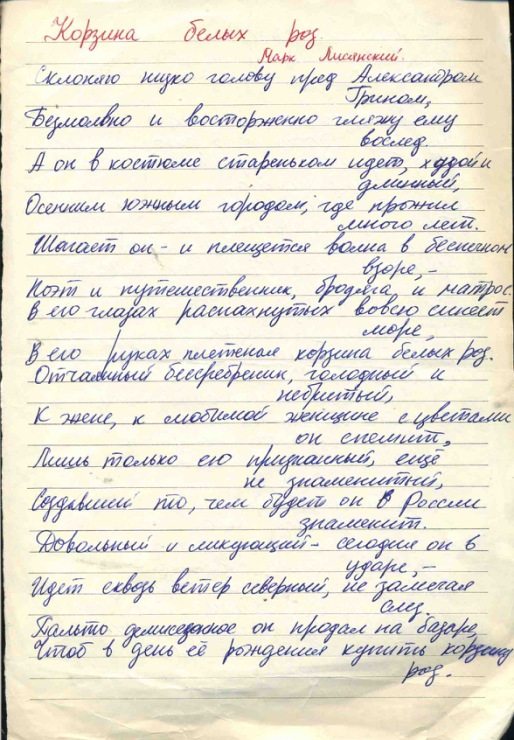 Корзина белых роз.
Марк Лисянский.
Склоняю низко голову пред Александром
Грином,
Безмолвно и восторженно гляжу ему
вослед.
А он в костюме стареньком идет, худой и
длинный,
Осенним южным городом, где прожил
много лет.
Шагает он - и плещется волна в беспечном
взоре, –
Поэт и путешественник, бродяга и матрос.
В его глазах распахнутых вовсю синеет
море,
В его руках плетеная корзина белых роз.
Отчаянный бессребреник, голодный и
небритый,
К жене, к любимой женщине с цветами
он спешит,
Лишь только ею признанный, ещё
не знаменитый,
Создавший то, чем будет он в России
знаменит.
Довольный и ликующий - сегодня он в
ударе, –
Идет сквозь ветер северный, не замечая
слез.
Пальто демисезонное он продал на базаре,
Чтоб в день её рождения купить корзину
роз.